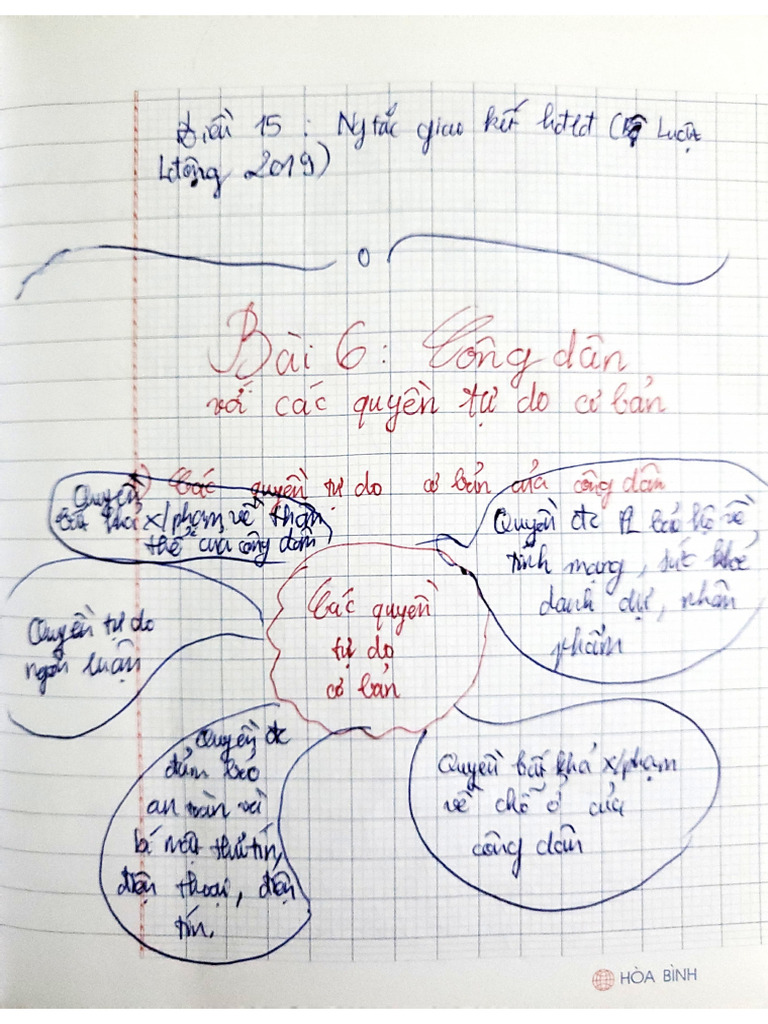 Điều 15 : Ngtắc giao kết hđlđ (Luật
Lđộng 2019)
Bài 6 : Công dân
với các quyền tự do cơ bản
1) Các quyền tự do cơ bản của công dân
Quyền
bất khả x/phạm về thân
thể của công dân
Quyền đc PL bảo hộ về
tính mạng, sức khoẻ
danh dự, nhân
phẩm
Các quyền
tự do
cơ bản
Quyền tự do
ngôn luận
Quyền đc
đảm bảo
an toàn và
bí mật thư tín,
điện thoại, điện
tín.
Quyền bất khả x/phạm
về chỗ ở của
công dân
HÒA BÌNH